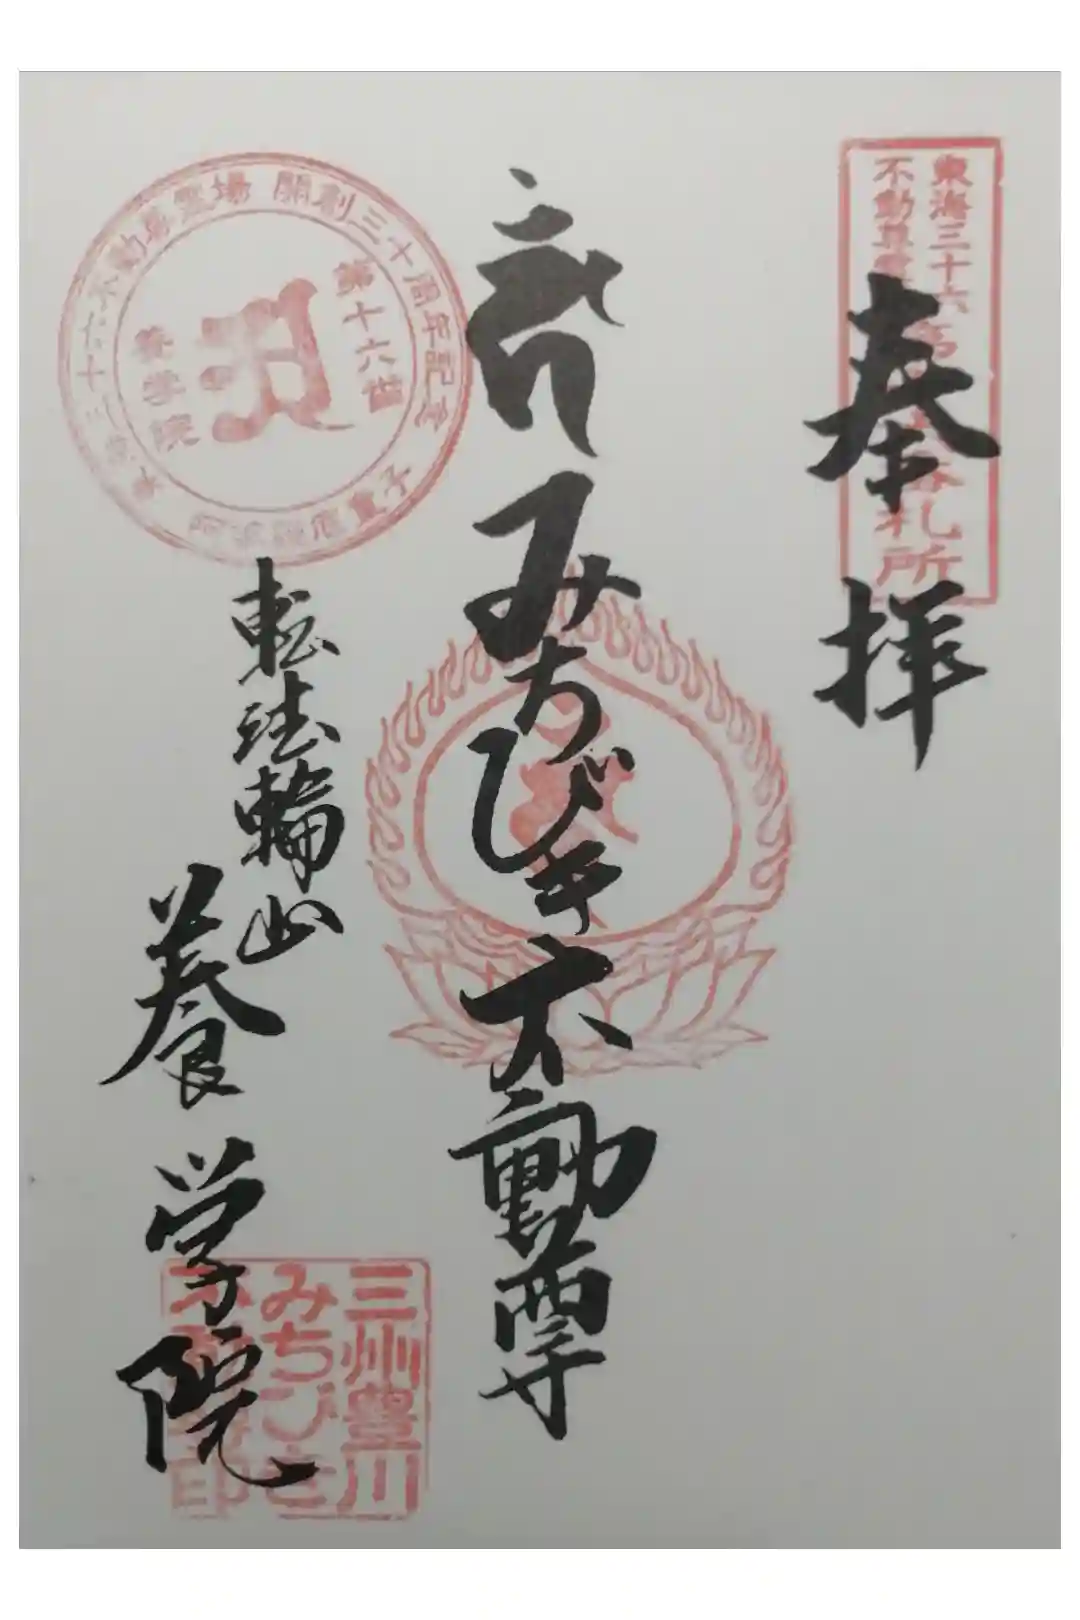 奉拝
東海三十六
不動尊霊
札所
みちびき不動尊
転法輪山
養学院
開創三十周年記念
三十六不動尊霊場
第十六番
養学院
三州豊川
みちびき
印